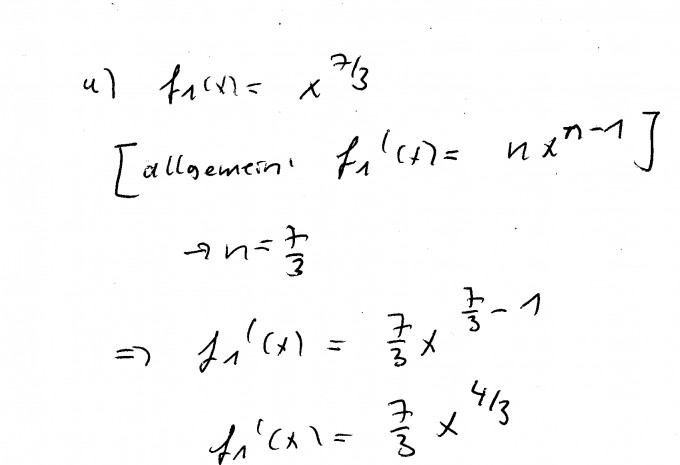 a) f₁(x) = x^7/3
[allgemein: f₁'(x) = n x^n-1]
→ n = 7/3
⇒ f₁'(x) = 7/3 x^7/3 - 1
f₁'(x) = 7/3 x^4/3